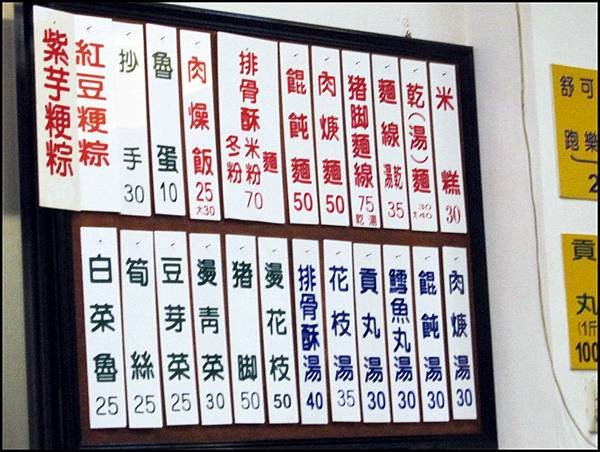 米糕 30
乾(湯)麵 30 大40
麵線 乾湯 35
猪脚麵線 75 乾湯
肉焿麵 50
餛飩麵 50
排骨酥 麵 米粉 冬粉 70
肉燥飯 25 大30
魯蛋 10
抄手 30
紅豆粳粽
紫芋粳粽
肉焿湯 30
餛飩湯 30
鱈魚丸湯 30
貢丸湯 30
花枝湯 35
排骨酥湯 40
燙花枝 50
猪脚 50
燙青菜 30
豆芽菜 25
筍絲 25
白菜魯 25
可樂
舒跑
貢丸
(1斤
100